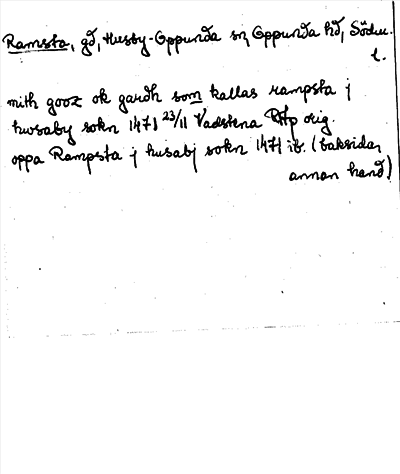 Ramsta, gd, Husby-Oppunda sn, Oppunda hd, Söderm.
l.
mith gooz ok gardh som kallas rampsta j
hwsaby sokn 1471 23/11 Vadstena Rfp orig.
oppa Rampsta j husabj sokn 1471 ib. (baksidan,
annan hand)